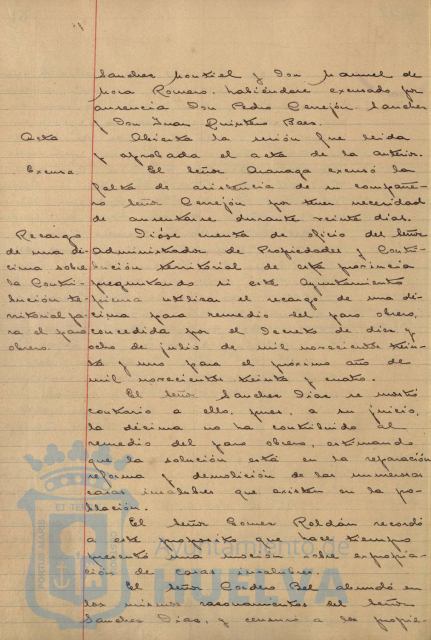 Sanchez Montiel y Don Manuel de
Mora Romero, habiéndose excusado por
ausencia Don Pedro Cerrejón Sanchez
y Don Juan Quintero Baez.
Acta
Abierta la sesión fue leida
y aprobada el acta de la anterior.
Excusa
El Señor Aranaga excusó la
falta de asistencia de su compañe-
ro Señor Cerrejón por tener necesidad
de ausentarse durante veinte dias.
Recargo
de una dé-
cima sobre
la Contri-
bución te-
rritorial pa-
ra el paro
obrero.
Dióse cuenta de oficio del Señor
Administrador de Propiedades y Contri-
bución territorial de esta provincia
preguntando si este Ayuntamiento
piensa utilizar el recargo de una dé-
cima para remedio del paro obrero,
concedida por el Decreto de diez y
ocho de julio de mil novecientos trein-
ta y uno para el próximo año de
mil novecientos treinta y cuatro.
El Señor Sanchez Dias se mostró
contrario a ello, pues, a su juicio,
la décima no ha contribuido al
remedio del paro obrero, estimando
que la solución está en la reparación
reforma y demolición de las numerosas
casas insalubres que existen en la po-
blación.
El Señor Gomez Roldán recordó
a este proposito que hace tiempo
presentó una moción sobre expropia-
ción de casas insalubres.
El Señor Cordero Bel abundó en
los mismos razonamientos del Señor
Sanchez Dias, y censuró a la propie-
Ayuntamiento de
HUELVA